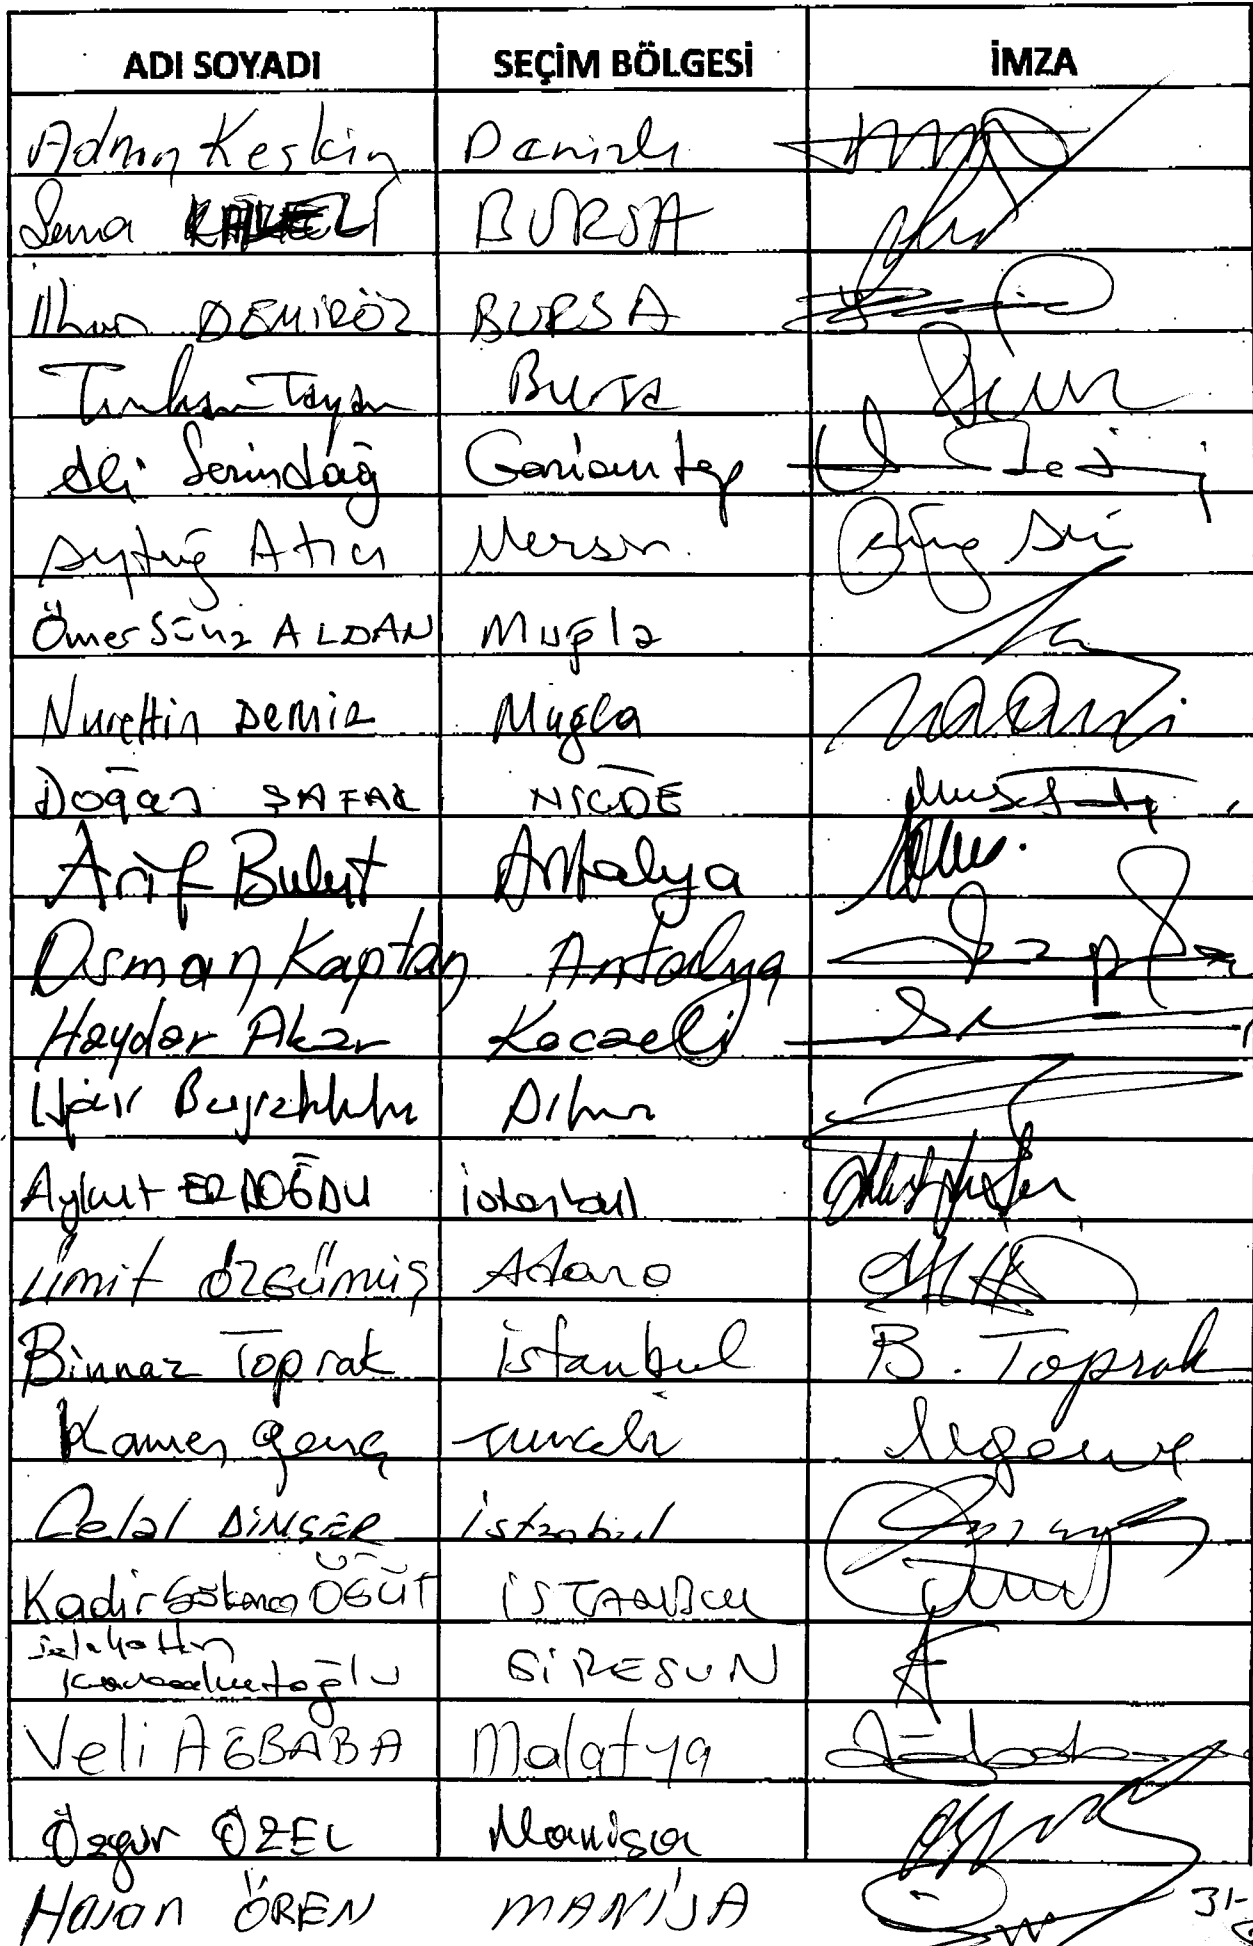 ADI SOYADI SEÇİM BÖLGESİ İMZA
Adnan Keskin Denizli
Sena KALELİ BURSA
İlhan DEMİRÖZ BURSA
Turhan Tayan Bursa
Ali Serindağ Gaziantep
Aytuğ Atıcı Mersin
Ömer Süha ALDAN Muğla
Nurettin DEMİR Muğla
Doğan ŞAFAK NİĞDE
Arif Bulut Antalya
Osman Kaptan Antalya
Haydar Akar Kocaeli
Uğur Bayraktutan Artvin
Aykut ERDOĞDU İstanbul
Ümit ÖZGÜMÜŞ Adana
Binnaz Toprak İstanbul B. Toprak
Kamer Genç Tunceli
Celal DİNÇER İstanbul
Kadir Gökmen ÖĞÜT İSTANBUL
Selahattin
Karaahmetoğlu GİRESUN
Veli AĞBABA Malatya
Özgür ÖZEL Manisa
Hasan ÖREN MANİSA
31-